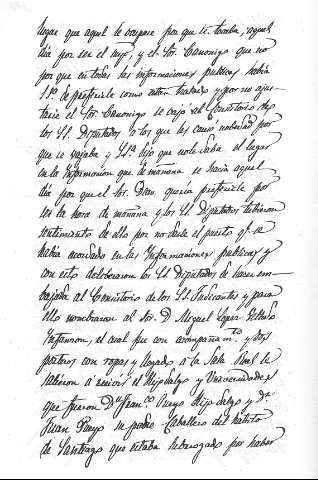 lugar que aquel le ocupase por que le tocaba, aquel
dia por ser el mas, y el Sor. Canonigo que no
por que en todas las informaciones publicas havia
S.ª de preferirle como estava tratado y por no ajus-
tarse el Sor. Canonigo se vajó al Consistorio de
los SS. Diputados a los que les causó nobedad por
que se vajaba y S.ª dijo que no le daba el lugar
en la Informacion que la mañana se hacia aquel
dia por que el Sor. Dean queria preferirle por
ser la hora de mañana y los SS. Diputados tubieron
sentimiento de ello por no darle el puesto q.e se
havia acordado en las Informaciones publicas y
con esto deliberaron los SS. Diputados de hacer em-
bajada al Consistorio de los SS. Judicantes y para
ello nombraron al Sor. D. Miguel Lopez
Infanzon, el cual fue con acompañam.to y dos
porteros con ropas y llegados a la Sala Real le
salieron a recivir el Hijodalgo y Universidades
que fueron D.n Fran.co Pueyo Hijodalgo y D.n
Juan Pueyo su padre Caballero del habito
de Santiago que estaba por haber